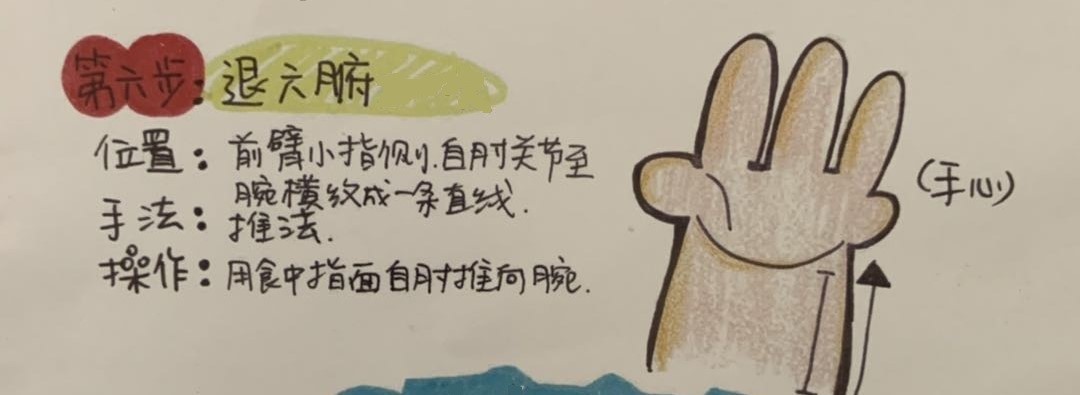 第六步：退六腑
位置：前臂小指侧.自肘关节至
腕横纹成一条直线.
手法：推法.
操作：用食中指面自肘推向腕.
(手心)